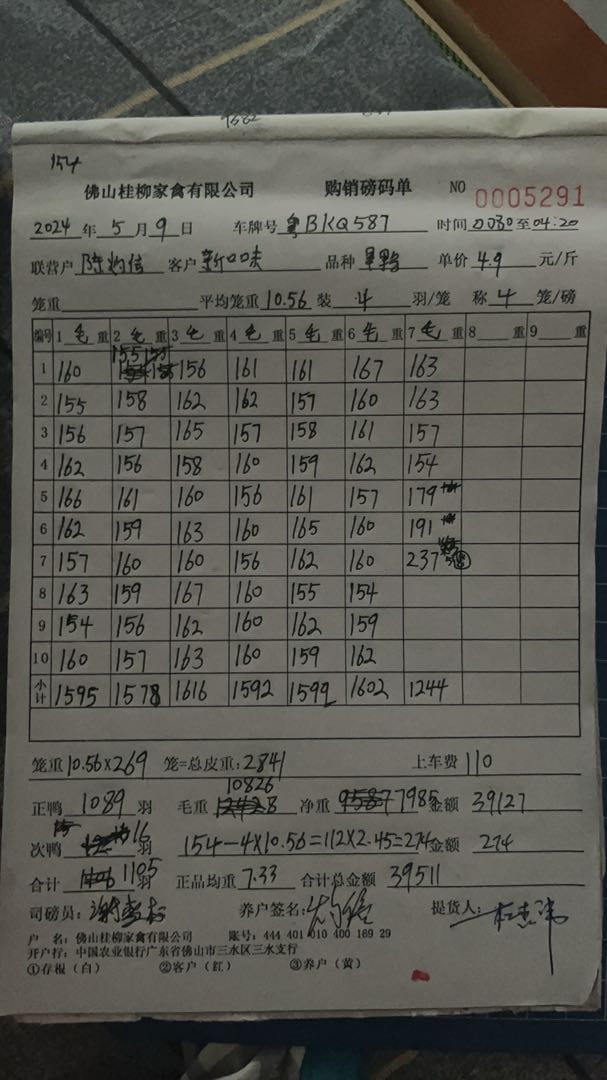 154
佛山桂柳家禽有限公司 购销磅码单 NO 0005291
2024 年 5 月 9 日 车牌号 粤BKQ587 时间 0030 至 04:20
联营户 客户 新口味 品种 单价 4.9 元/斤
笼重 平均笼重 10.56 装 4 羽/笼 称 4 笼/磅
编号 1 毛 重 2 毛 重 3 毛 重 4 毛 重 5 毛 重 6 毛 重 7 毛 重 8 重 9 重
1 160 155 156 161 161 167 163
2 155 158 162 162 157 160 163
3 156 157 165 157 158 161 157
4 162 156 158 160 159 162 154
5 166 161 160 156 161 157 179
6 162 159 163 160 165 160 191
7 157 160 160 156 162 160 237
8 163 159 167 160 155 154
9 154 156 162 160 162 159
10 160 157 163 160 159 162
小计 1595 1578 1616 1592 1599 1602 1244
笼重 10.56×269 笼=总皮重: 2841 上车费 110
正鸭 1089 羽 毛重 10826 净重 7985 金额 39127
次鸭 16 羽 154-4×10.56=112×2.45=274 金额 274
合计 1105 羽 正品均重 7.33 合计总金额 39511
司磅员: 养户签名: 提货人:
户 名: 佛山桂柳家禽有限公司 账号: 444 401 010 400 169 29
开户行: 中国农业银行广东省佛山市三水区三水支行
①存根（白） ②客户（红） ③养户（黄）